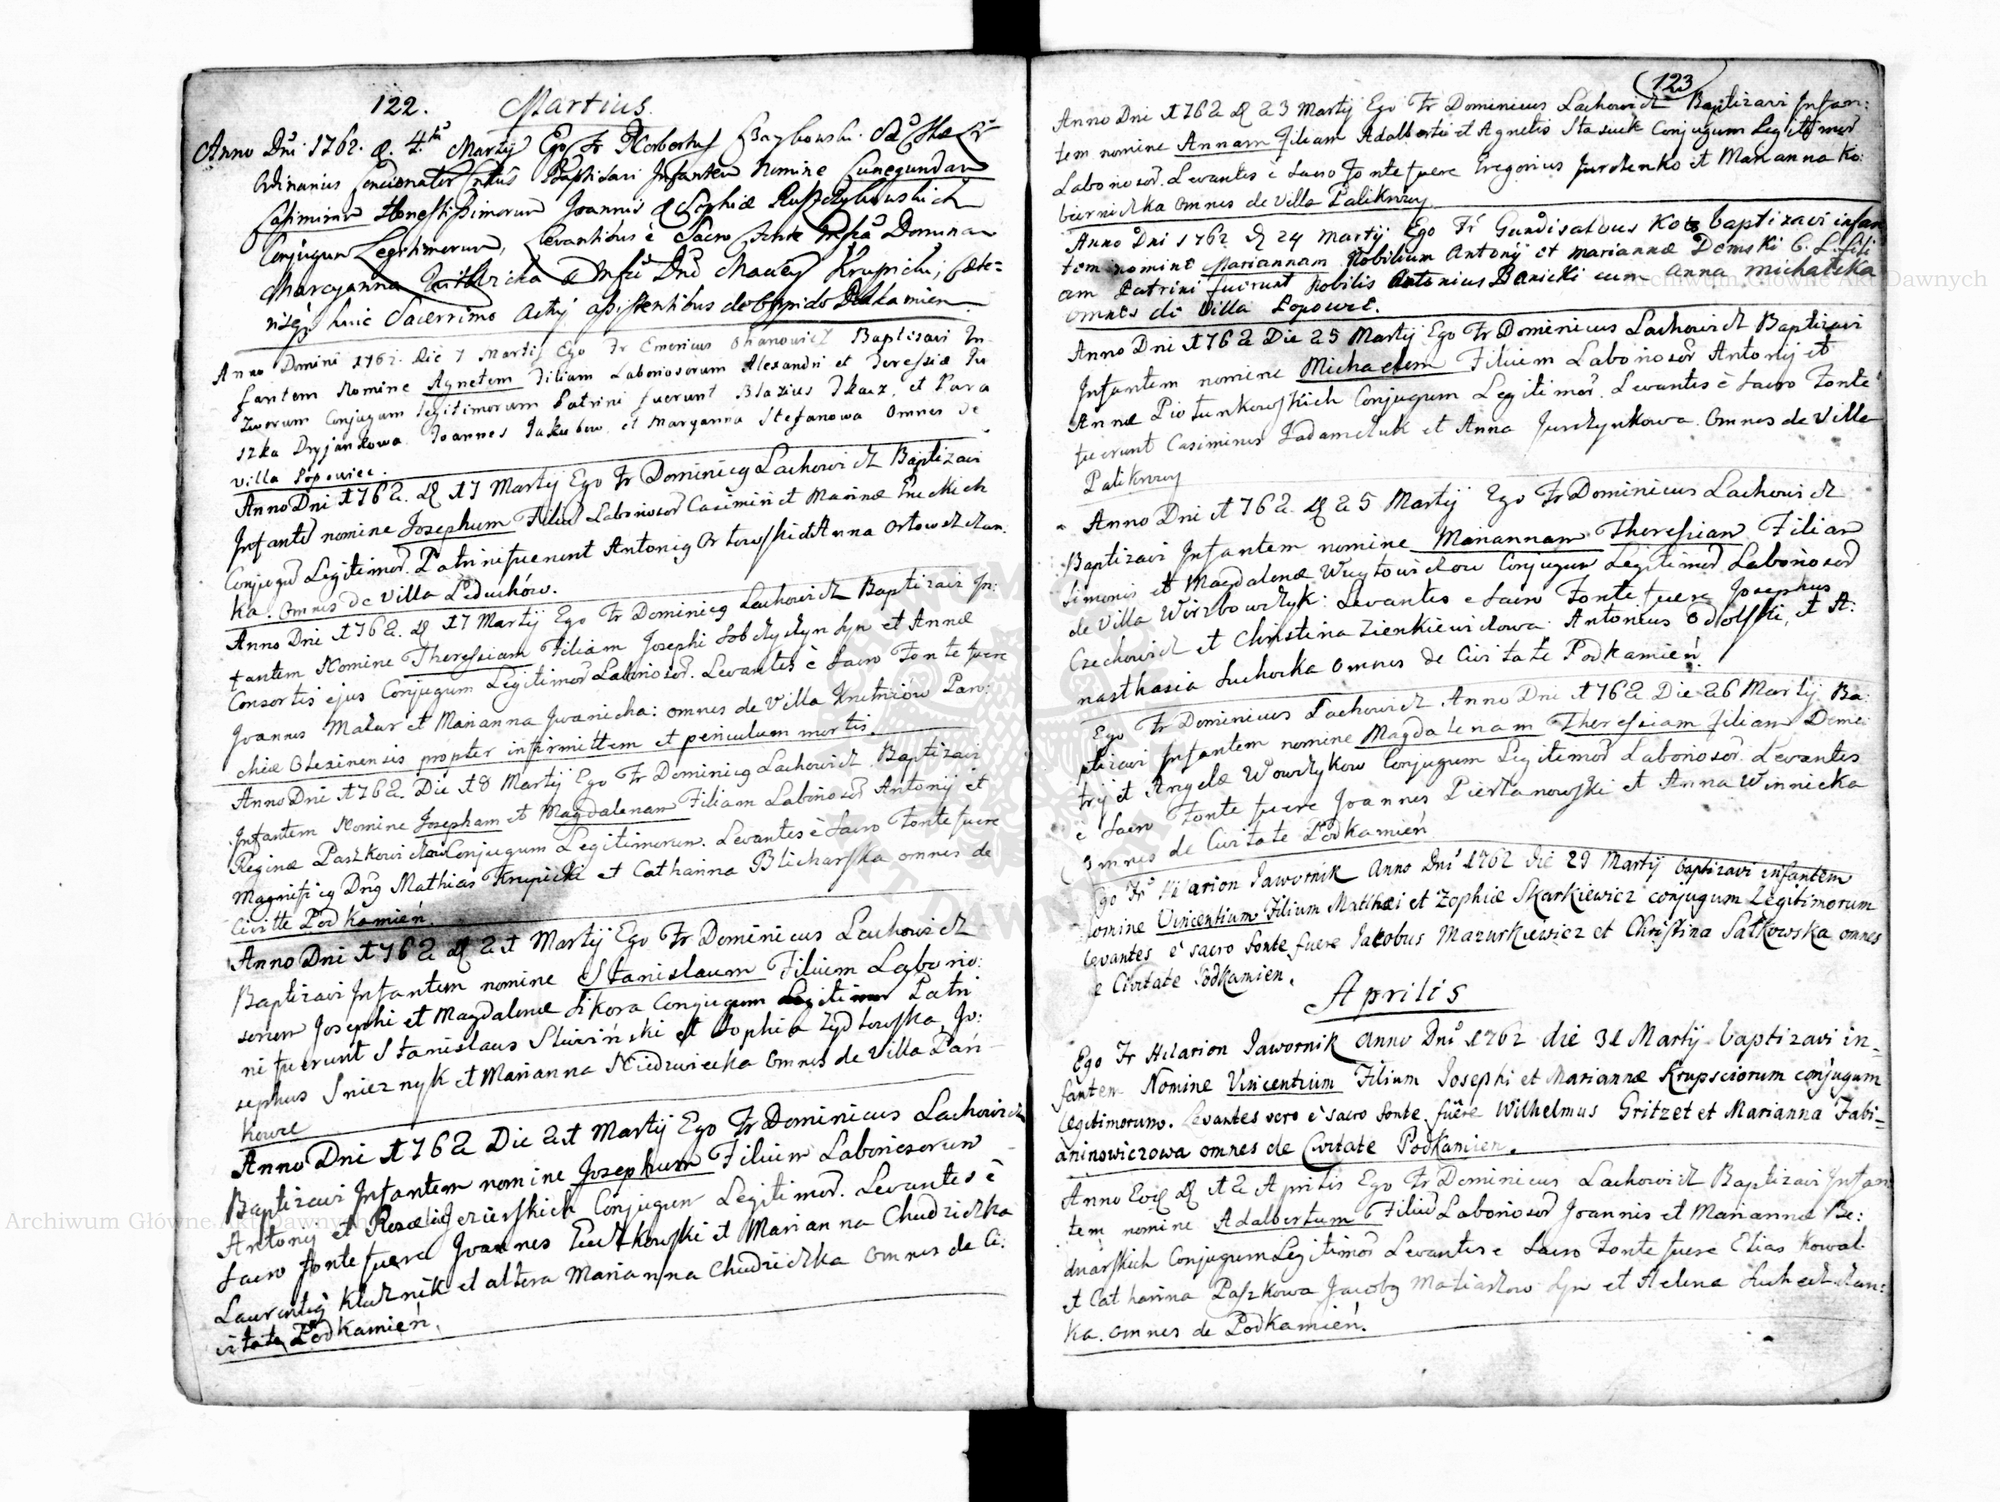 122. Martius
Anno Dni 1762. d. 4. Martij Ego Fr
Ordinarius Concionator Baptisavi Infantem Nomine Cunegundam
Honestissimorum Joannis & Sophiæ
Conjugum Legitimorum, Levantibus è Sacro Fonte Domina
Maryanna & Maciey Krupicki,
huic Sacerrimo Actuj assistentibus de Oppido Podkamien
Anno Domini 1762. Die 7 Martij Ego Fr Emericus Baptisavi In
fantem Nomine Agnetem Filiam Laboriosorum Alexandri et Teressiæ
Conjugum legitimorum Patrini fuerunt Blazius Tkacz, et Para
szka Joannes Jakubow et Maryanna Stefanowa Omnes de
villa Popowiec.
Anno Dni 1762. d 17 Martij Ego Fr Dominicg Lachowicz Baptizavi
nomine Josephum Casimiri et Marinæ
Legitimor. Patrini fuerunt Antonig Orlowski et Anna Orlowszczan:
ka. omnes de Villa Peduchów.
Anno Dni 1762. d 17 Martij Ego Fr Dominicg Lachowicz Baptizavi In:
fantem Nomine Theressiam Filiam Josephi et Annæ
Consortis ejus Conjugum Legitimor Laborosor. Levantes è Sacro Fonte fuere
Joannes Mazur et Marianna Jwanicha: omnes de Villa
Olexinensis propter infirmittem et periculum mortis.
Anno Dni 1762. Die 18 Martij Ego Fr Dominicg Lachowicz Baptizavi
Infantem Nomine Josepham et Magdalenam Filiam Laborosor Antonij et
Reginæ Conjugum Legitimorum. Levantes è Sacro Fonte fuere
Magnificg Dng Mathias Krupicki et Catharina Blicharska omnes de
Civitte Podkamień.
Anno Dni 1762 d 21 Martij Ego Fr Dominicus Lachowicz
Baptizavi Infantem nomine Stanislaum Filium Laborio:
sorum Josephi et Magdalenæ Sikora Conjugum Legitimor Patri
ni fuerunt Stanislaus et Sophia Zydlowska, Jo:
sephus Snieznyk et Marianna Niedzwiecka omnes de Villa Pań
kowce
Anno Dni 1762 Die 21 Martij Ego Fr Dominicus Lachowicz
Baptizavi Infantem nomine Josephum Filium Laboriosorum
Antonij et Rosaliæ Jezierskich Conjugum Legitimor. Levantes è
Sacro Fonte fuere Joannes et Marianna Chudziczka
Laurentig Klucznik et altera Marianna Chudziczka omnes de Ci:
vitate Podkamień.
123
Anno Dni 1762 d 23 Martij Ego Fr Dominicus Lachowicz Baptizavi Infan:
tem nomine Annam Filiam Adalberti et Agnetis Stasiuk Conjugum Legitimor
Laboriosor. Levantes è Sacro Fonte fuere Gregorius et Marianna Ko:
biernicka omnes de Villa Palikrowy
Anno Dni 1762 d 24 Martij Ego Fr Gundisalvus Kots baptizavi infan
tem nomine Mariannam Nobilium Antonij et Mariannæ Demski
am Patrini fuerunt Nobilis Antonius Banicki cum Anna Michalska
omnes de Villa Popowce.
Anno Dni 1762 Die 25 Martij Ego Fr Dominicus Lachowicz Baptizavi
Infantem nomine Michaelem Filium Laboriosor Antonij et
Annæ Piotunkowskich Conjugum Legitimor. Levantes è Sacro Fonte
fuerunt Casimirus et Anna omnes de Villa
Palikrowy
Anno Dni 1762. d 25 Martij Ego Fr Dominicus Lachowicz
Baptizavi Infantem nomine Mariannam Theressiam Filiam
Simonis et Magdalenæ Conjugum Legitimor Laboriosor
de Villa Wirzbowczyk: Levantes e Sacro Fonte fuere Josephus
Czechowicz et Christina Zienkiewiczowa Antonius et A:
nasthasia Suchocka omnes de Civitate Podkamień.
Ego Fr Dominicus Lachowicz Anno Dni 1762 Die 26 Martij Ba:
ptizavi Infantem nomine Magdalenam Theressiam Filiam Deme
trij et Angelæ Wowczykow Conjugum Legitimor Laboriosor. Levantes
è Sacro Fonte fuere Joannes et Anna Winnicka
Omnes de Civitate Podkamień
Ego Fr Hilarion Jawornik Anno Dni 1762 die 29 Martij baptizavi infantem
Nomine Vincentium Filium Matthæi et Zophiæ Skarkiewicz conjugum Legitimorum
Levantes è sacro fonte fuere Jacobus Mazurkiewicz et Christina Satkowska omnes
e Civitate Podkamien.
Aprilis
Ego Fr Hilarion Jawornik Anno Dni 1762 die 31 Martij baptizavi in=
fantem Nomine Vincentium Filium Josephi et Mariannæ Krupsciorum conjugum
legitimorum. Levantes vero è sacro fonte fuêre Wilhelmus Gritzet et Marianna Fabi=
aninowiczowa omnes de Civitate Podkamien.
Anno d 12 Aprilis Ego Fr Dominicus Lachowicz Baptizavi Infan
tem nomine Adalbertum Laboriosor Joannis et Mariannæ Be:
dnarskich Conjugum Legitimor Levantes e Sacro Fonte fuere Elias Kowal
et Catharina Paszkowa Jacobg et Helena
ka. omnes de Podkamień.
Archiwum Główne Akt Dawnych
Archiwum Główne Akt Dawnych